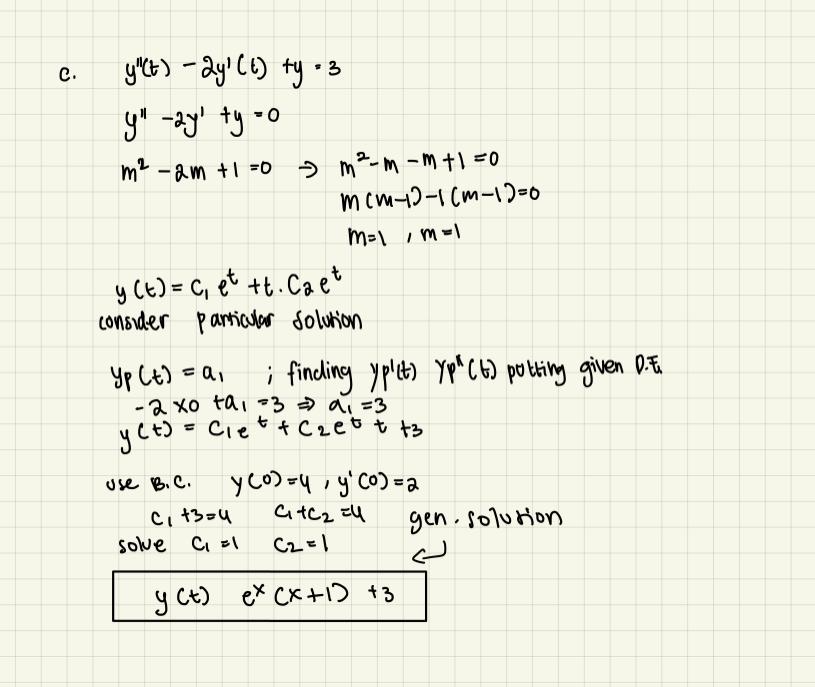 c. y''(t) - 2y'(t) + y = 3
y'' - 2y' + y = 0
m² - 2m + 1 = 0 → m² - m - m + 1 = 0
m(m-1) - 1(m-1) = 0
m=1 , m=1
y(t) = C₁ eᵗ + t . C₂ eᵗ
consider particular solution
yp(t) = a₁ ; finding yp'(t) yp''(t) putting given D.E.
-2 x0 + a₁ = 3 ⇒ a₁ = 3
y(t) = C₁eᵗ + C₂eᵗ t + 3
use B.C. y(0)=4 , y'(0)=2
C₁ +3=4 C₁+C₂ =4 gen. solution
solve C₁ =1 C₂ =1
y(t) eˣ (x+1) +3